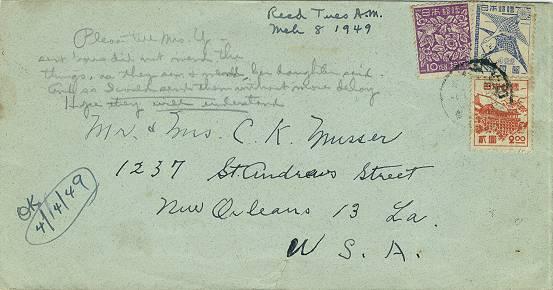 Recd Tues A.M.
Mch 8 1949
Please tell Mrs. Y —
did not mend the
things, as they are her daughter said
and so I send them without more delay
Hope they will understand
Mr. & Mrs. C. K. Musser
1237 St. Andrews Street
New Orleans 13 La.
U. S. A.
OK
4/4/49
日本郵便
10
日本郵便
日本郵便
2.00